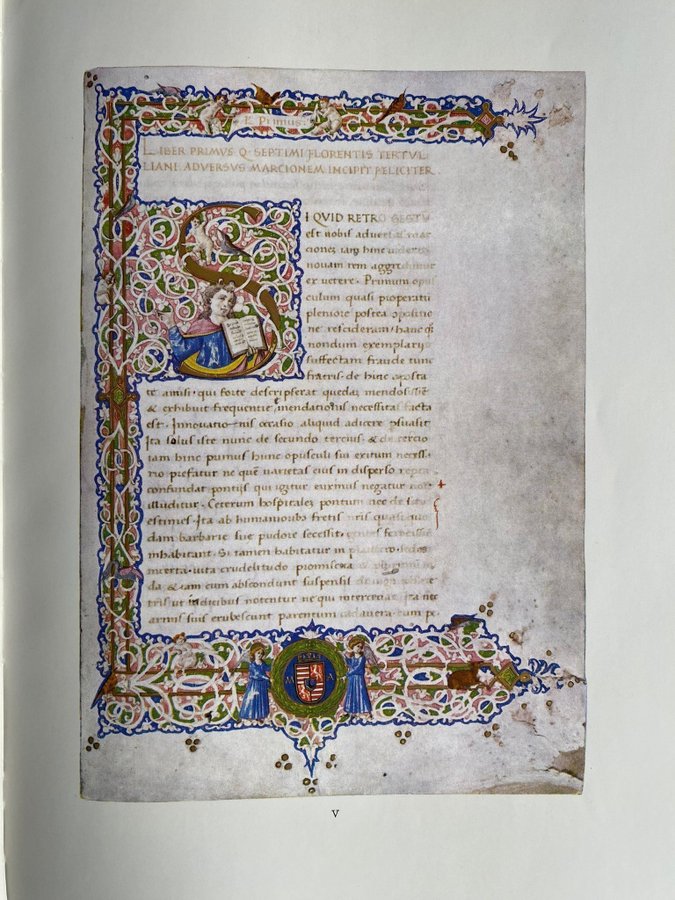 L. Primus
LIBER PRIMUS Q. SEPTIMI FLORENTIS TERTUL
LIANI ADVERSUS MARCIONEM INCIPIT FELICITER
SI QVID RETRO GESTU
est nobis
ciones iam hinc
novam rem aggredimur
ex vetere. Primum
culum quasi properatū
pleniore postea
ne rescideram: hanc
nondum exemplariis
suffectam fraude tunc
fratris. de hinc aposta
te amisi: qui forte descripserat quedam mendosissīe
& exhibuit frequentie. mendationis necessitas facta
est. Innovationis occasio aliquid adicere
Ita solus iste nunc de secundo tercius. & de tercio
iam hinc primus hunc opusculi sui exitum necess
rio prefatur ne quem varietas eius in disperso
confundat pontus qui igitur euxinus negatur
illuditur. Ceterum hospitales pontum nec de
estimes. Ita ab humanioribus fretis nris quasi quo
dam barbarie sue pudore secessit. gentes
inhabitant. Si tamen habitatur in plaustro. sedes
incerta. vita crudel
da. & iam cum abscondunt suspensis de
tris ut indicibus notentur ne qui intercedat. Ita
armis suis erubescunt parentum cadavera cum pe
M A
V